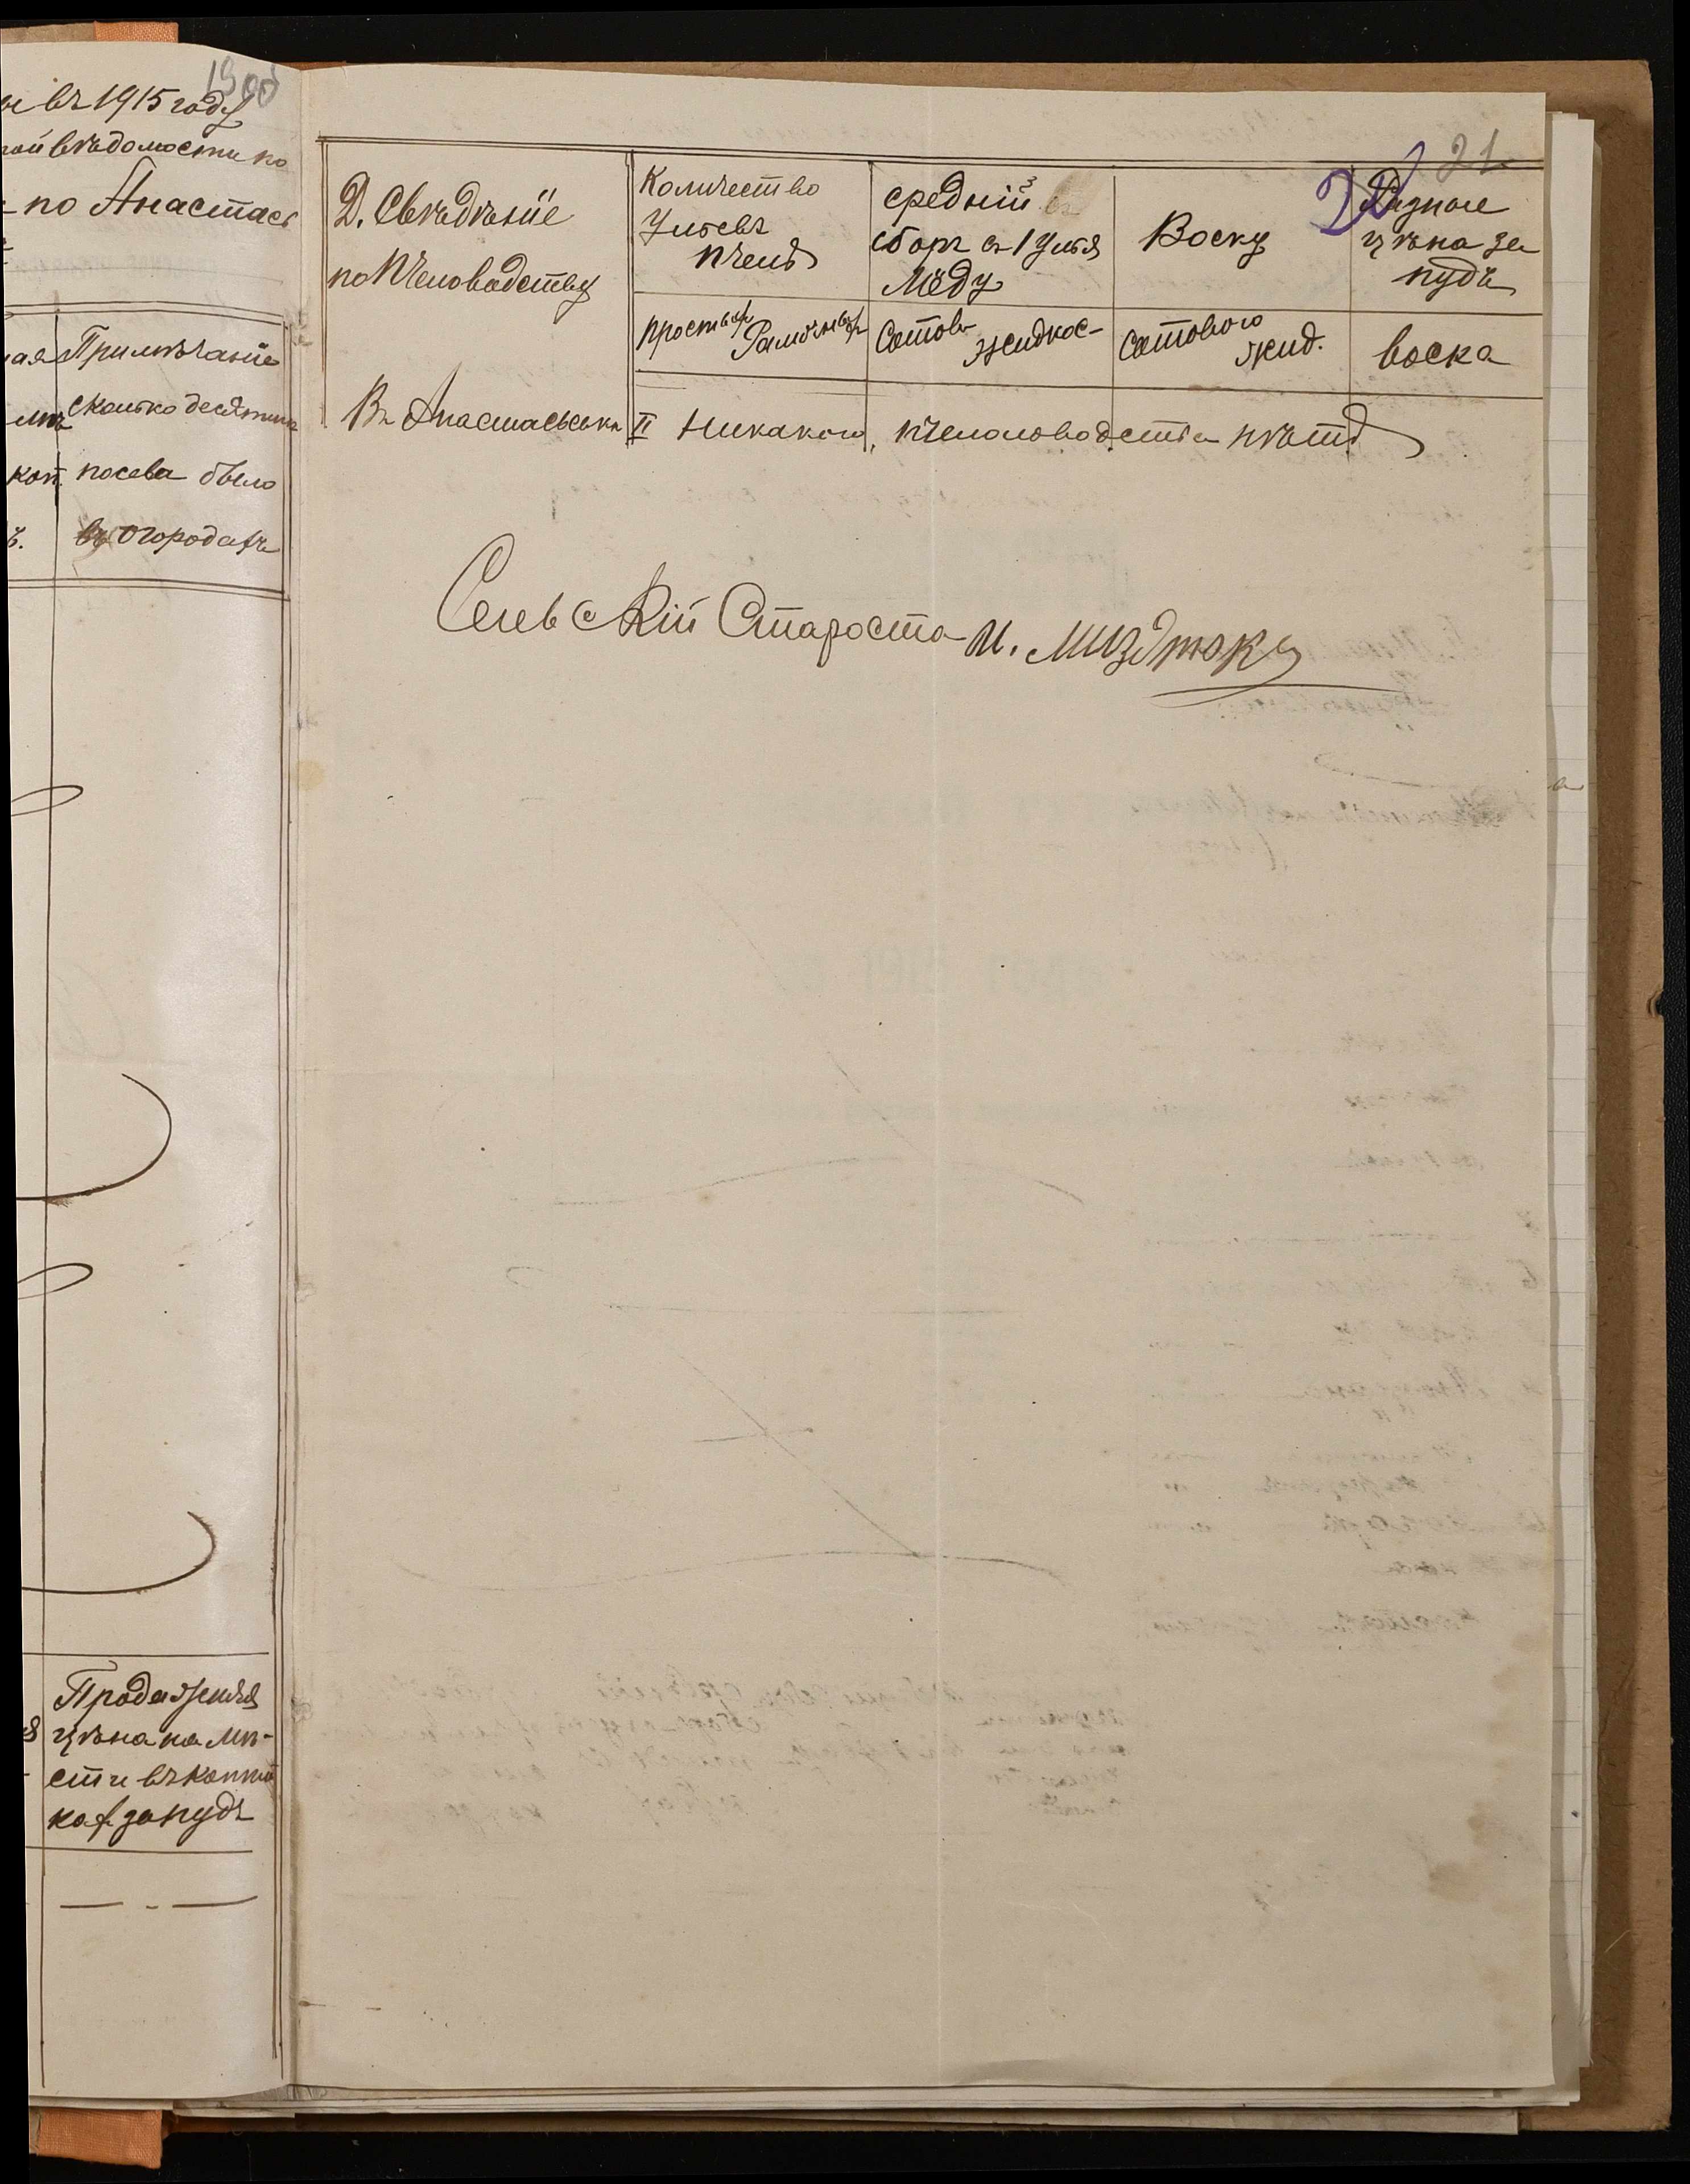 1900
въ 1915 году
вѣдомости по
по Анастась
Примѣчаніе
сколько десятинъ
коп. посева было
въ огородахъ
Продажная
цѣна на мѣ-
сти въ копѣй
ках за пудъ
21
22
Д. Свѣдѣніе
по Пчеловодству
Количество
Ульевъ
пчелъ
средній
сборъ съ 1 Улья
Мёду
Воску
цѣна за
пудъ
простых Рамочных
Сотов- жидкос-
Сотового жид.
воска
Въ Анастасьевки II Никакого, пчеловодства нѣтъ
Сельскій Староста И.